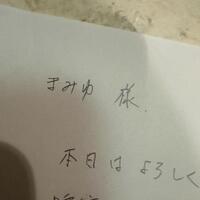 まみゆ 様.
本日は よろしく